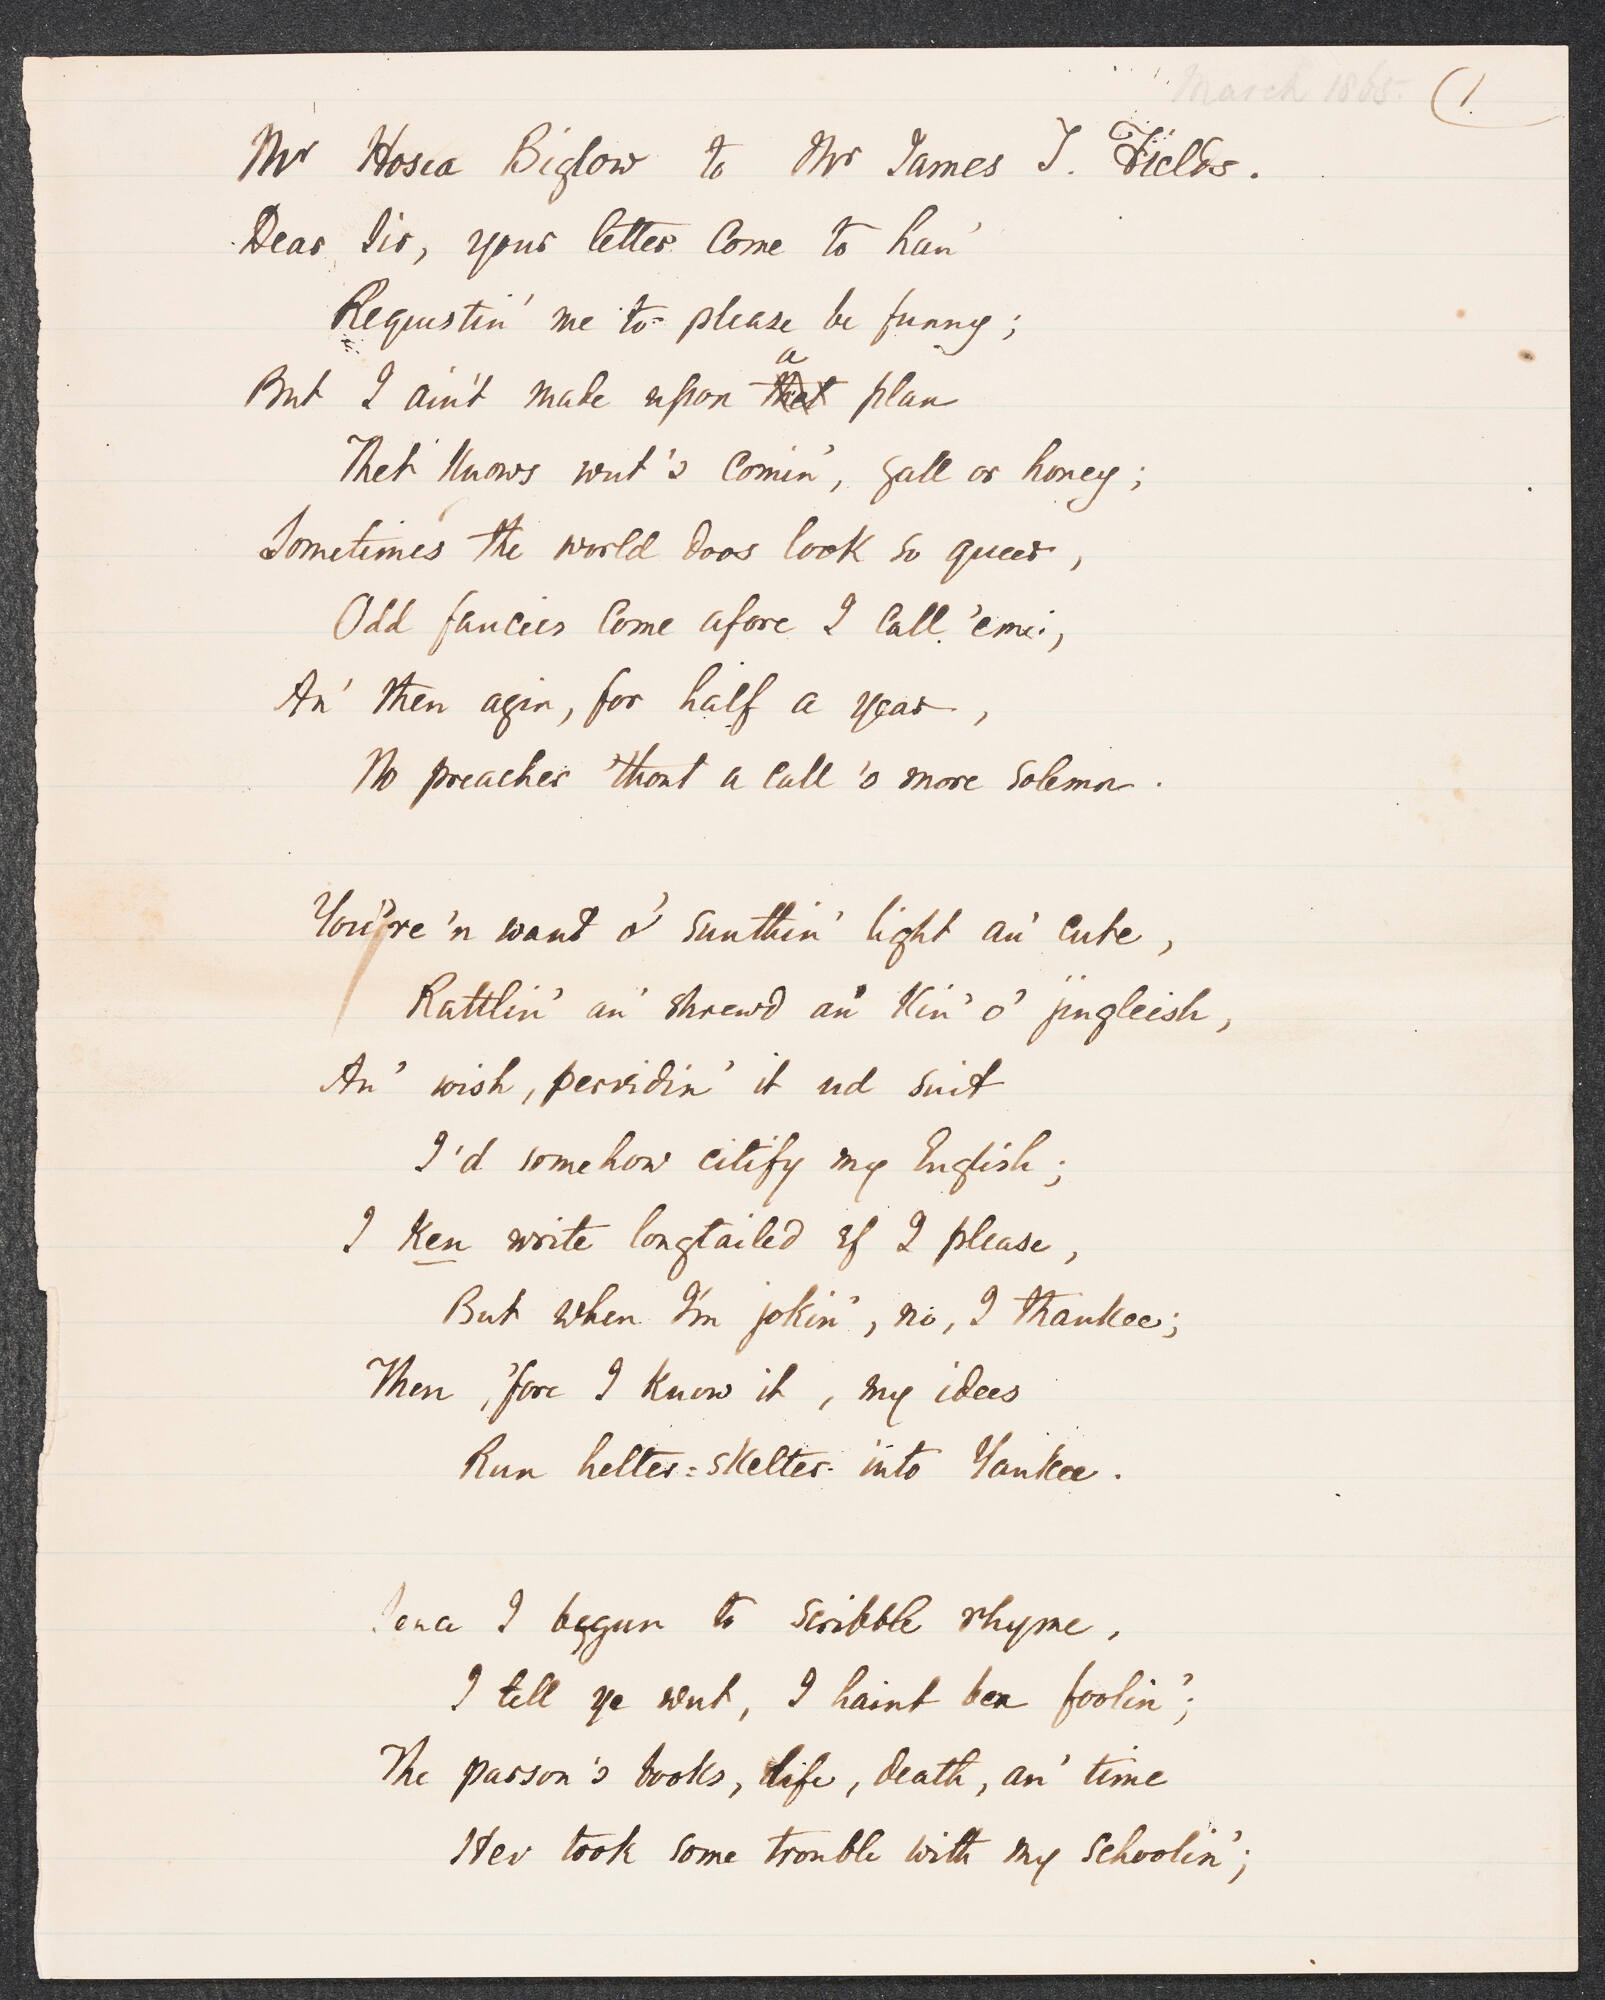 March 1865. (1
Mr Hosea Biglow to Mr James T. Fields.
Dear Sir, your letter come to han'
Requestin' me to please be funny;
a
But I ain't made upon thet plan
Thet knows wut's comin', gall or honey;
Sometimes the world doos look so queer,
Odd fancies come afore I call 'em;,
An' then agin, for half a year,
No preacher 'thout a call 's more solemn.
You're 'n want o' sunthin' light an' cute,
Rattlin' an' shrewd an' kin' o' jingleish,
An' wish, pervidin' it ud suit
I'd somehow citify my English;
I ken write longtailed ef I please,
But when I'm jokin', no, I thankee;
Then, 'fore I know it, my idees
Run helter-skelter into Yankee.
Sence I begun to scribble rhyme,
I tell ye wut, I haint ben foolin';
The parson's books, life, death, an' time
Hev took some trouble with my schoolin';